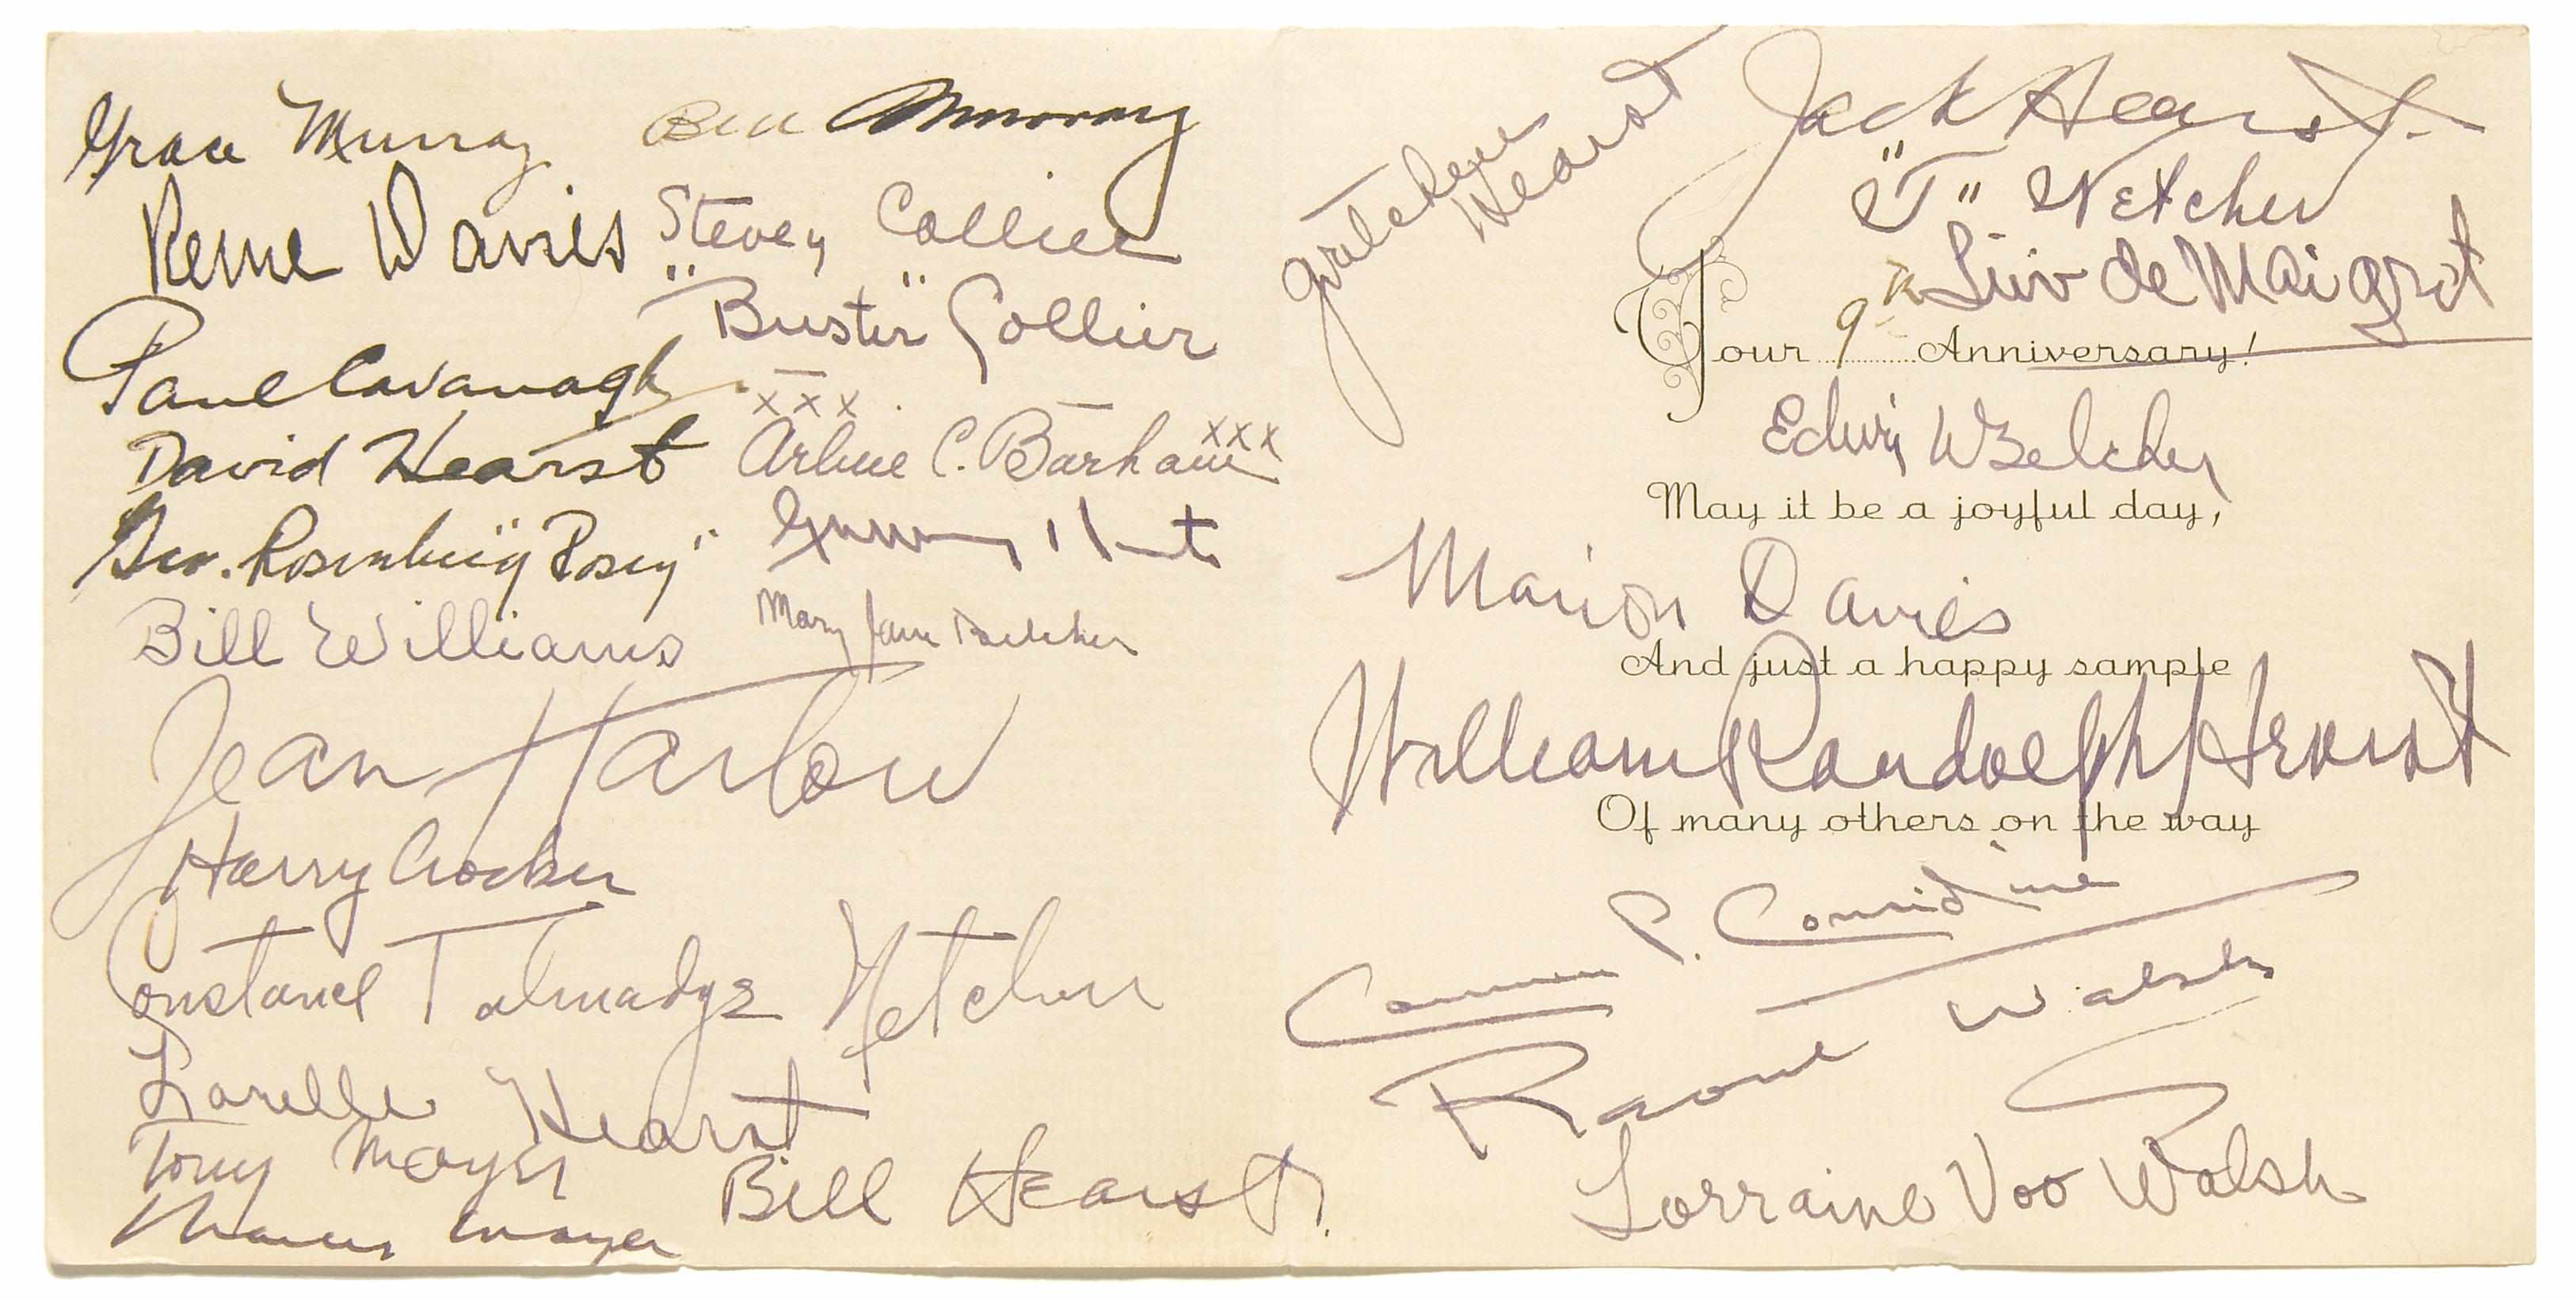 Grace Murray
Ben Murray
Reine Davies
Stevey Collier
"Buster" Collier
Paul Cavanagh
x x x
David Hearst
Arline C. Barham xxx
Geo. Rosenberg "Rosey"
Bill Williams
Mary Jane Belcher
Jean Harlow
Harry Crocker
Constance Talmadge Netcher
Lorelle Hearst
Tony Mayer
Mayer
Bill Hearst.
Gretchen Hearst
Jack Hearst.
"T" Netcher
de Maigret
Your 9th Anniversary!
Edwin W Belcher
May it be a joyful day,
Marion Davies
And just a happy sample
William Randolph Hearst
Of many others on the way
P. Considine
Raoul Walsh
Lorraine Voo Walsh